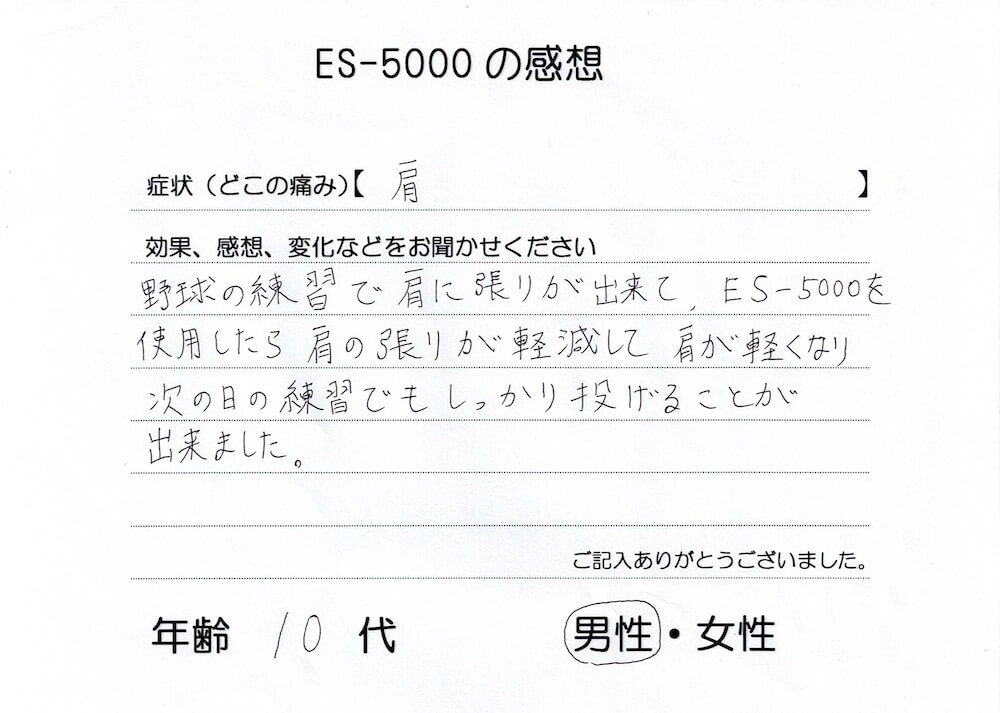 ES-5000の感想
症状(どこの痛み)【 肩 】
効果、感想、変化などをお聞かせください
野球の練習で肩に張りが出来て、ES-5000を
使用したら肩の張りが軽減して肩が軽くなり
次の日の練習でもしっかり投げることが
出来ました。
ご記入ありがとうございました。
年齢 10 代 男性・女性